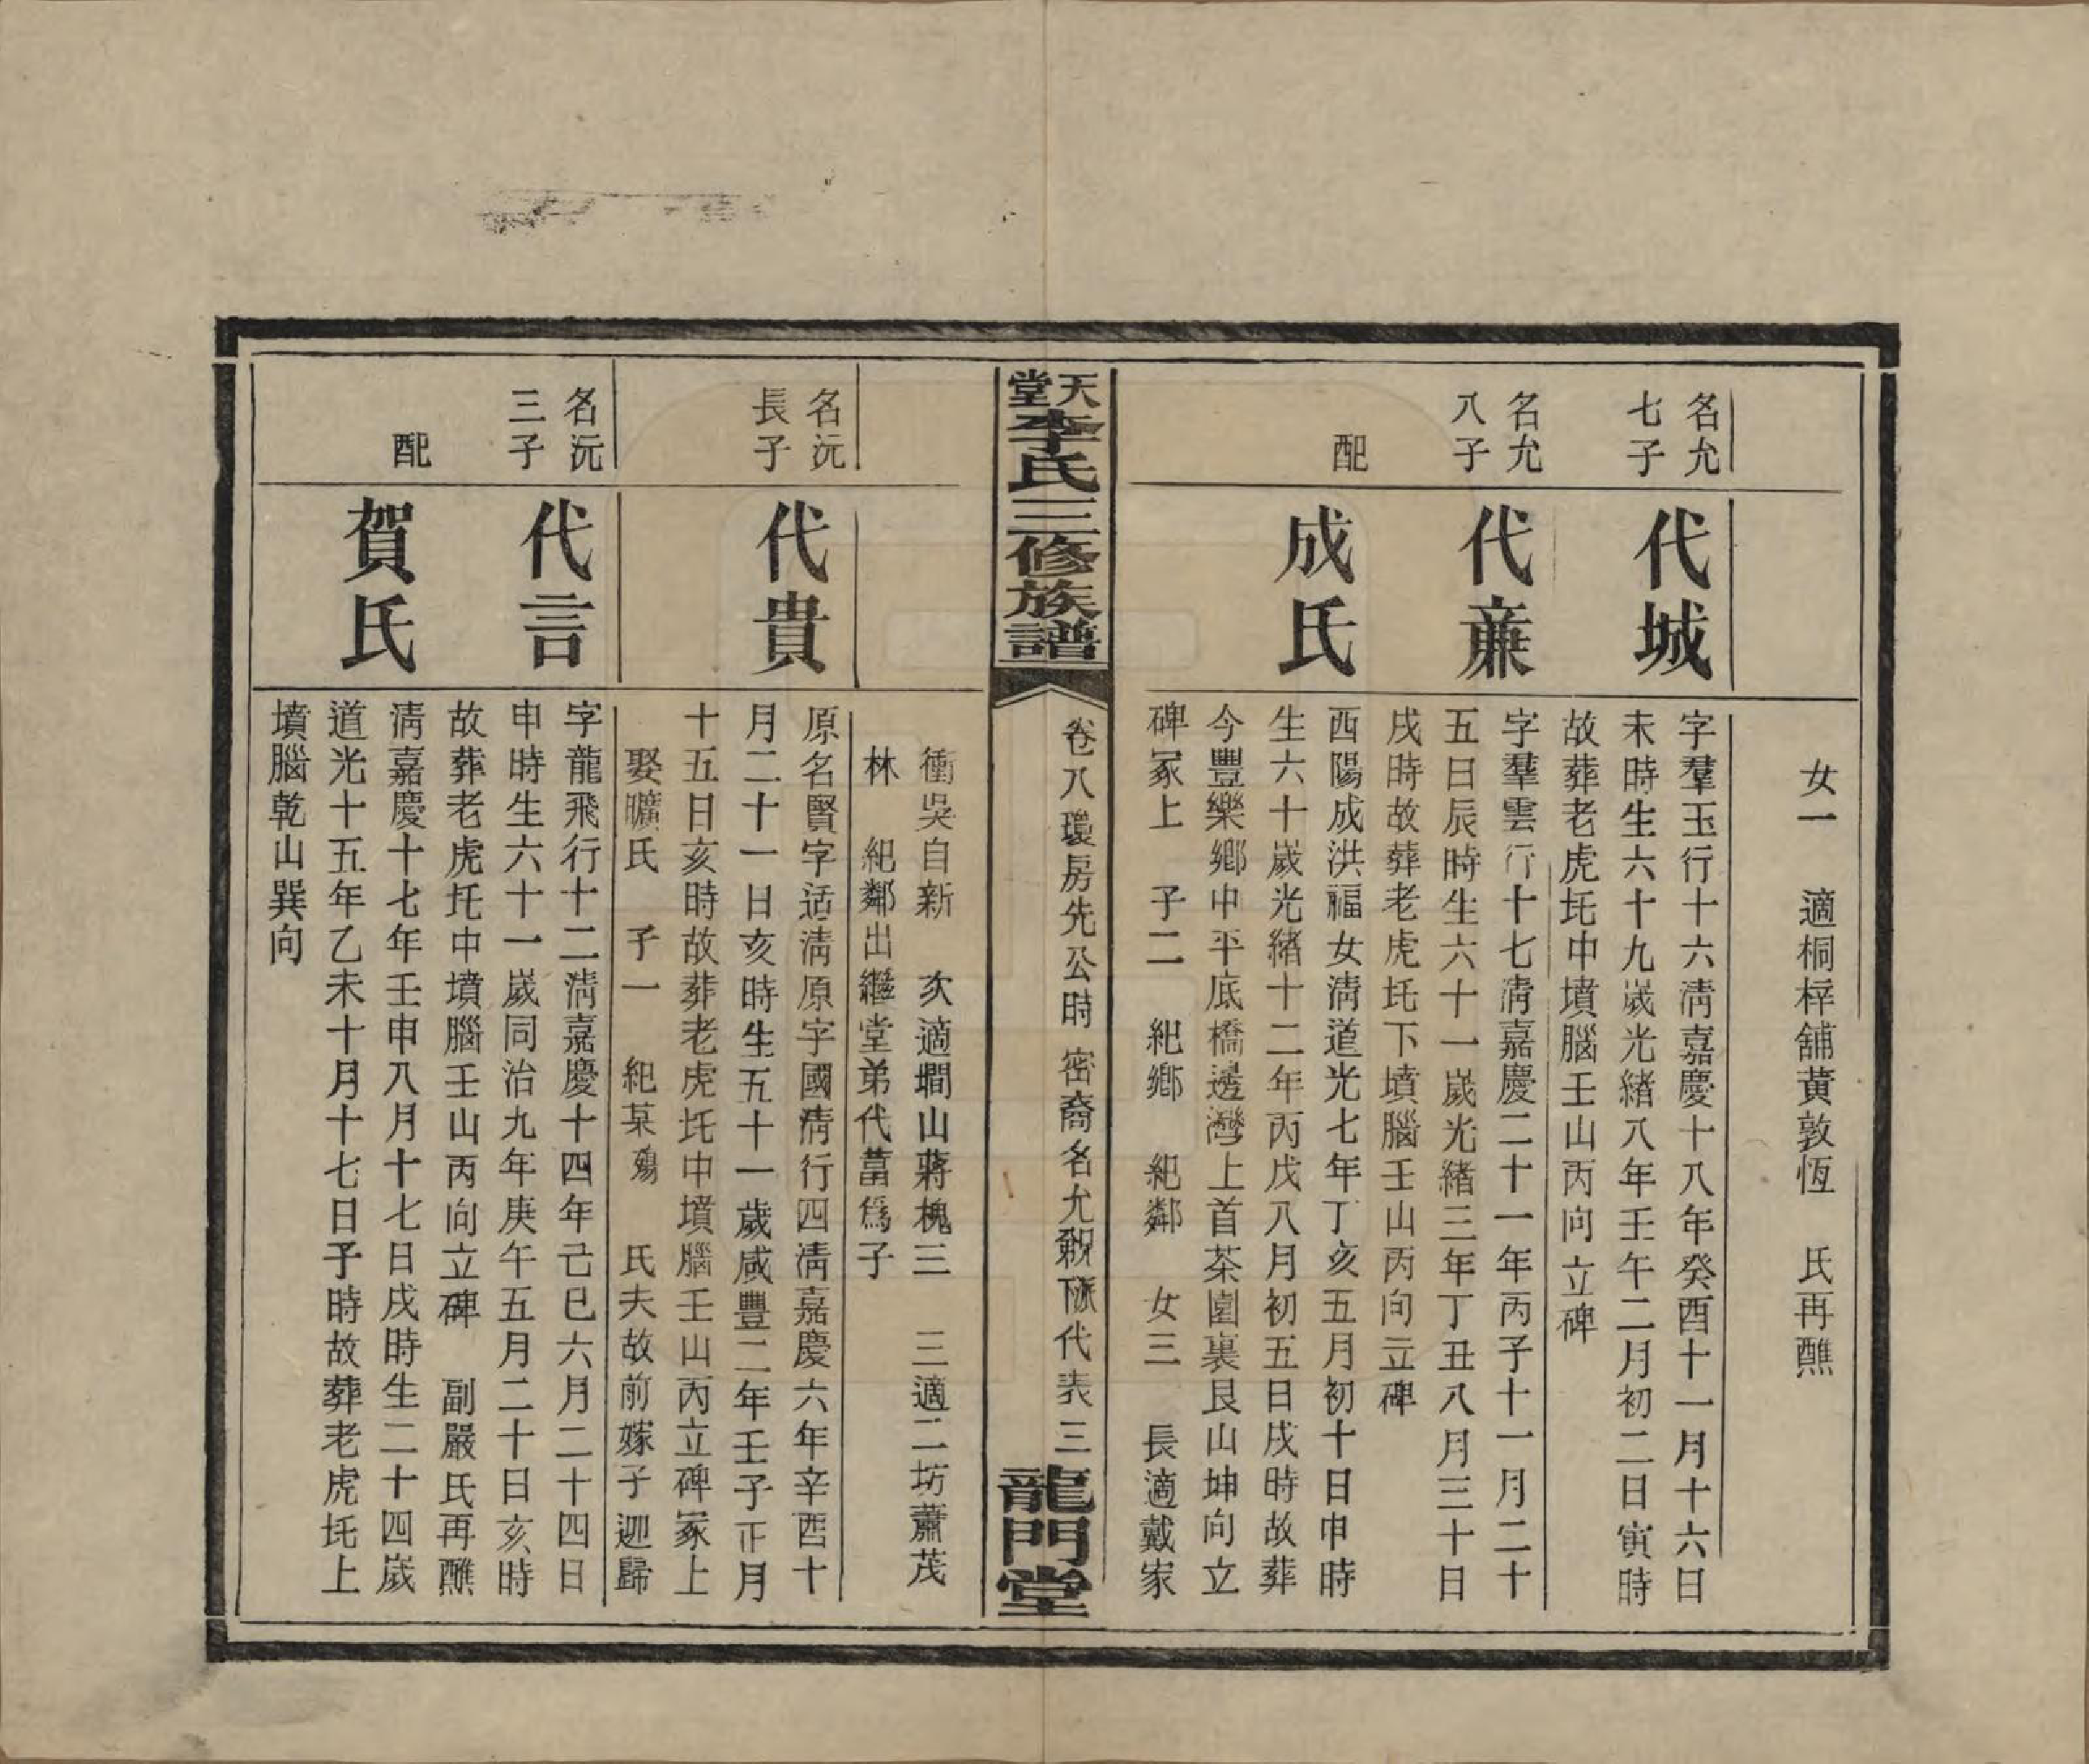 女一　適桐梓舖黃敦恆　氏再醮
名允
七子
代城
字羣玉行十六淸嘉慶十八年癸酉十一月十六日
未時生六十九歲光緒八年壬午二月初二日寅時
故葬老虎圫中墳腦壬山丙向立碑
名允
八子
代蔴
字羣雲行十七淸嘉慶二十一年丙子十一月二十
五日辰時生六十一歲光緒三年丁丑八月三十日
戌時故葬老虎圫下墳腦壬山丙向立碑
配
成氏
西陽成洪福女淸道光七年丁亥五月初十日申時
生六十歲光緒十二年丙戌八月初五日戌時故葬
今豐樂鄉中平底橋邊灣上首茶園裏艮山坤向立
碑冢上　子二　紀鄉　紀鄰　女三　長適戴家
天堂李氏三修族譜
卷八瓊房先公時　密裔名允　派下代表三
龍門堂
衝吳自新　次適壋山蔣槐三　三適二坊蕭茂
林　紀鄰出繼堂弟代菖爲子
名沅
長子
代貴
原名賢字适淸原字國淸行四淸嘉慶六年辛酉十
月二十一日亥時生五十一歲咸豐二年壬子正月
十五日亥時故葬老虎圫中墳腦壬山丙立碑冢上
娶曠氏　子一　紀某殤　氏夫故前嫁子迎歸
名沅
三子
代言
字龍飛行十二淸嘉慶十四年己巳六月二十四日
申時生六十一歲同治九年庚午五月二十日亥時
故葬老虎圫中墳腦壬山丙向立碑　副嚴氏再醮
配
賀氏
淸嘉慶十七年壬申八月十七日戌時生二十四歲
道光十五年乙未十月十七日子時故葬老虎圫上
墳腦乾山巽向